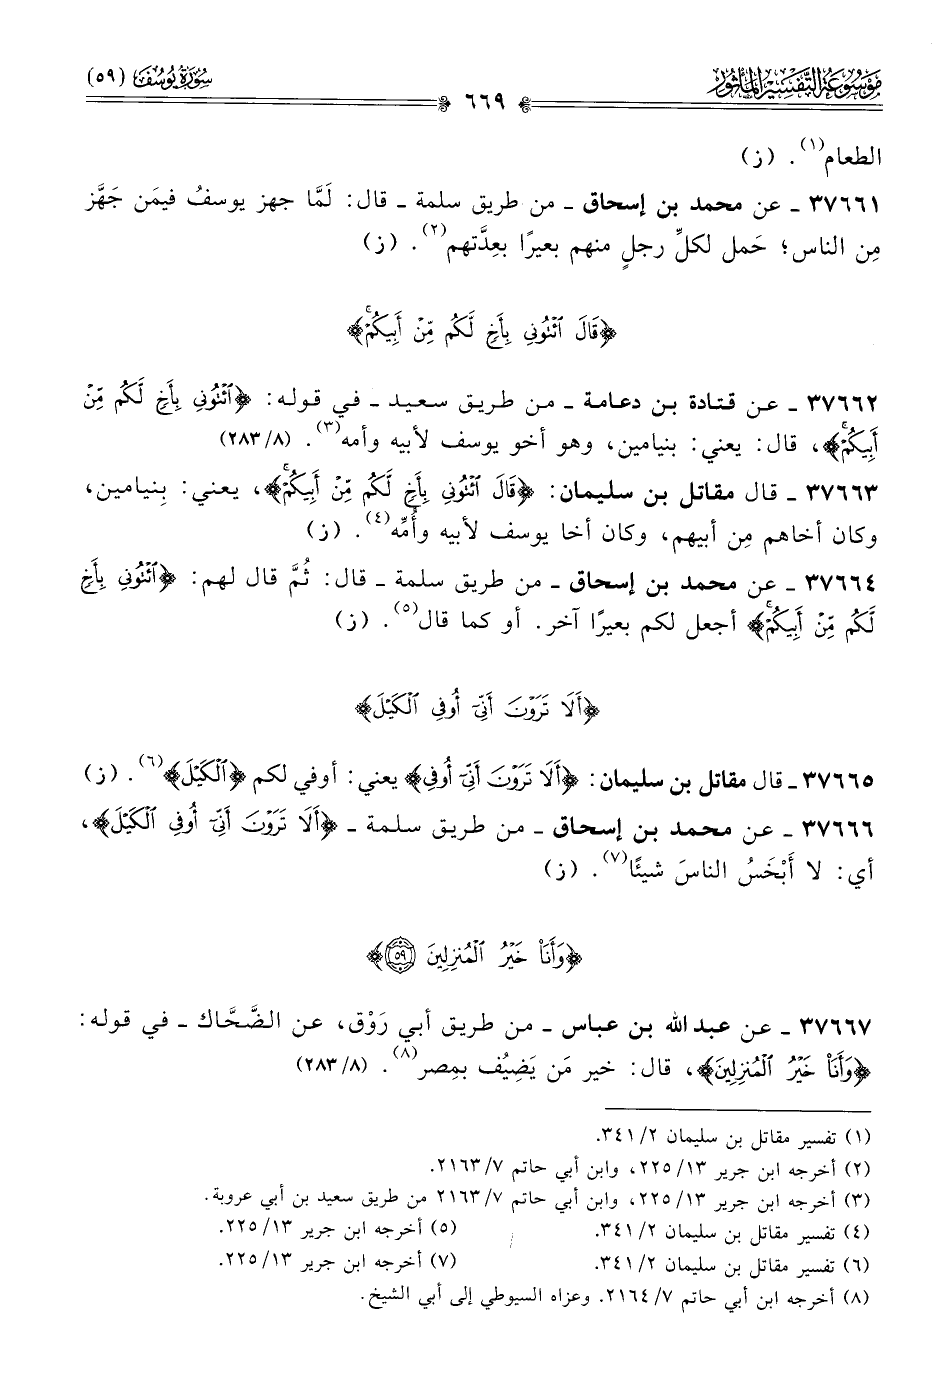 موسوعة التفسير المأثور
سورة يوسف (٥٩)
٦٦٩
الطعام(١). (ز)
٣٧٦٦١ ـ عن محمد بن إسحاق ـ من طريق سلمة ـ قال: لَمَّا جهز يوسفُ فيمَن جَهَّز
مِن الناس؛ حَمل لكلِّ رجلٍ منهم بعيرًا بعِدَّتهم(٢). (ز)
﴿قَالَ ٱئْتُونِي بِأَخٍ لَّكُم مِّنْ أَبِيكُمْۚ﴾
٣٧٦٦٢ ـ عن قتادة بن دعامة ـ من طريق سعيد ـ في قوله: ﴿ٱئْتُونِي بِأَخٍ لَّكُم مِّنْ
أَبِيكُمْۚ﴾، قال: يعني: بنيامين، وهو أخو يوسف لأبيه وأمه(٣). (٢٨٣/٨)
٣٧٦٦٣ ـ قال مقاتل بن سليمان: ﴿قَالَ ٱئْتُونِي بِأَخٍ لَّكُم مِّنْ أَبِيكُمْۚ﴾، يعني: بِنيامين،
وكان أخاهم مِن أبيهم، وكان أخا يوسف لأبيه وأُمِّه(٤). (ز)
٣٧٦٦٤ ـ عن محمد بن إسحاق ـ من طريق سلمة ـ قال: ثُمَّ قال لهم: ﴿ٱئْتُونِي بِأَخٍ
لَّكُم مِّنْ أَبِيكُمْۚ﴾ أجعل لكم بعيرًا آخر. أو كما قال(٥). (ز)
﴿أَلَا تَرَوْنَ أَنِّيٓ أُوفِي ٱلْكَيْلَ﴾
٣٧٦٦٥ ـ قال مقاتل بن سليمان: ﴿أَلَا تَرَوْنَ أَنِّيٓ أُوفِي﴾ يعني: أوفي لكم ﴿ٱلْكَيْلَ﴾(٦). (ز)
٣٧٦٦٦ ـ عن محمد بن إسحاق ـ من طريق سلمة ـ ﴿أَلَا تَرَوْنَ أَنِّيٓ أُوفِي ٱلْكَيْلَ﴾،
أي: لا أَبْخَسُ الناسَ شيئًا(٧). (ز)
﴿وَأَنَا۠ خَيْرُ ٱلْمُنزِلِينَ ٥٩﴾
٣٧٦٦٧ ـ عن عبد الله بن عباس ـ من طريق أبي رَوْق، عن الضَّحَّاك ـ في قوله:
﴿وَأَنَا۠ خَيْرُ ٱلْمُنزِلِينَ﴾، قال: خير مَن يَضِيُف بمِصر(٨). (٢٨٣/٨)
(١) تفسير مقاتل بن سليمان ٣٤١/٢.
(٢) أخرجه ابن جرير ٢٢٥/١٣، وابن أبي حاتم ٢١٦٣/٧.
(٣) أخرجه ابن جرير ٢٢٥/١٣، وابن أبي حاتم ٢١٦٣/٧ من طريق سعيد بن أبي عروبة.
(٤) تفسير مقاتل بن سليمان ٣٤١/٢. (٥) أخرجه ابن جرير ٢٢٥/١٣.
(٦) تفسير مقاتل بن سليمان ٣٤١/٢. (٧) أخرجه ابن جرير ٢٢٥/١٣.
(٨) أخرجه ابن أبي حاتم ٢١٦٤/٧. وعزاه السيوطي إلى أبي الشيخ.